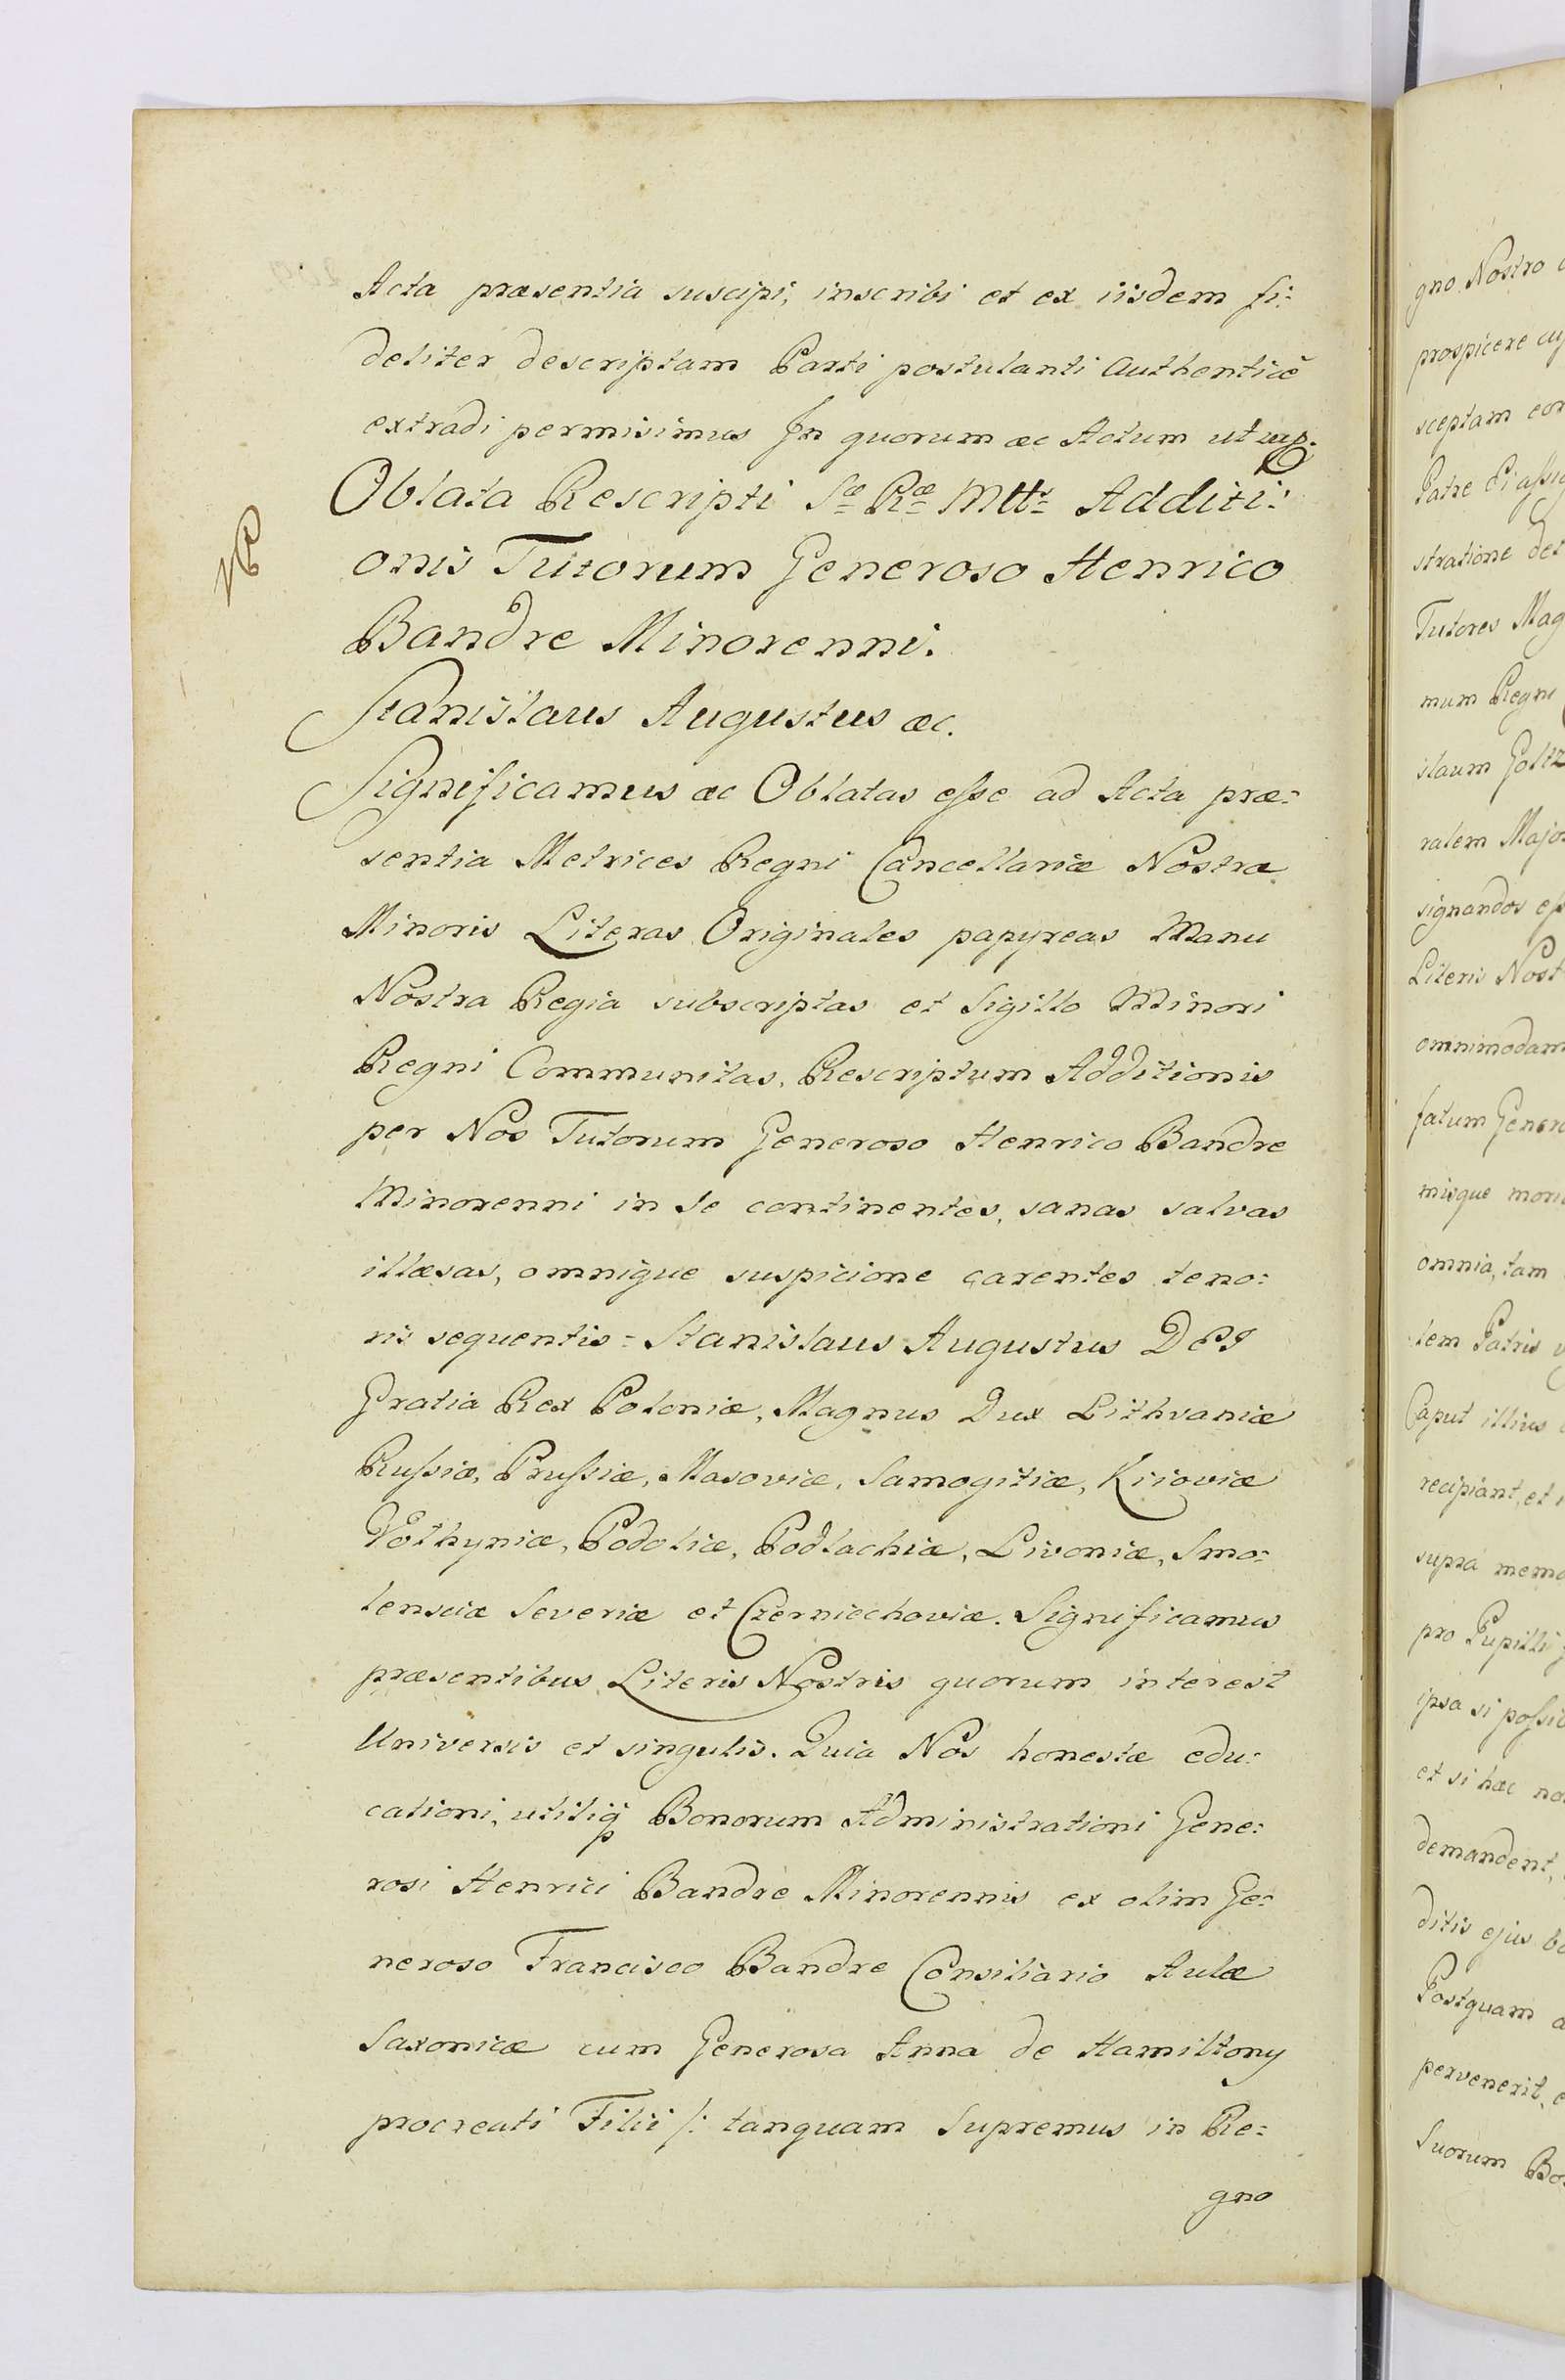 Acta præsentia suscipi, inscribi et ex iisdem fi:
deliter descriptam Parti postulanti Authenticè
extradi permisimus In quorum æc Actum ut sup:
Oblata Rescripti Sæ Ræ Mttis Additi:
onis Tutorum Generoso Henrico
Bandre Minorenni.
Stanislaus Augustus æc.
Significamus æc Oblatas esse ad Acta præ:
sentia Metrices Regni Cancellariæ Nostræ
Minoris Literas Originales papyreas Manu
Nostra Regia subscriptas et Sigillo Minori
Regni Communitas, Rescriptum Additionis
per Nos Tutorum Generoso Henrico Bandre
Minorenni in se continentes, sanas salvas
illæsas, omnique suspicione carentes teno:
ris sequentis = Stanislaus Augustus DEI
Gratia Rex Poloniæ, Magnus Dux Lithvaniæ
Russiæ, Prussiæ, Masoviæ, Samogitiæ, Kiioviæ
Volhyniæ, Podoliæ, Podlachiæ, Livoniæ, Smo:
lensciæ Severiæ et Czerniechoviæ. Significamus
præsentibus Literis Nostris quorum interest
Universis et singulis. Quia Nos honestæ edu:
cationi, utiliq Bonorum Administrationi Gene:
rosi Henrici Bandre Minorennis ex olim Ge:
neroso Francisco Bandre Consiliario Aulæ
Saxonicæ cum Generosa Anna de Hamiltony
procreati Filii /: tanquam Supremus in Re:
gno
gno Nostro
prospicere
sceptam
Patre Ei
stratione
Tutores
mum Regni
slaum Goltz
ralem
signandos
Literis
omnimodam
fatum
misque
omnia, tam
lem Patris
Caput illius
recipiant, et
supra
pro Pupilli
ipsa si
et si hæc
demandent,
ditis ejus
Postquam
pervenerit,
Suorum